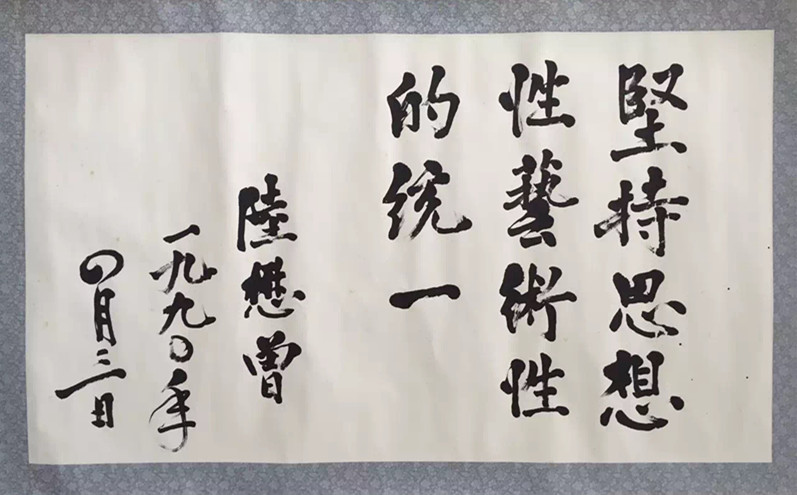 堅持思想
性藝術性
的統一
陸懋曾
一九九〇年
四月三日